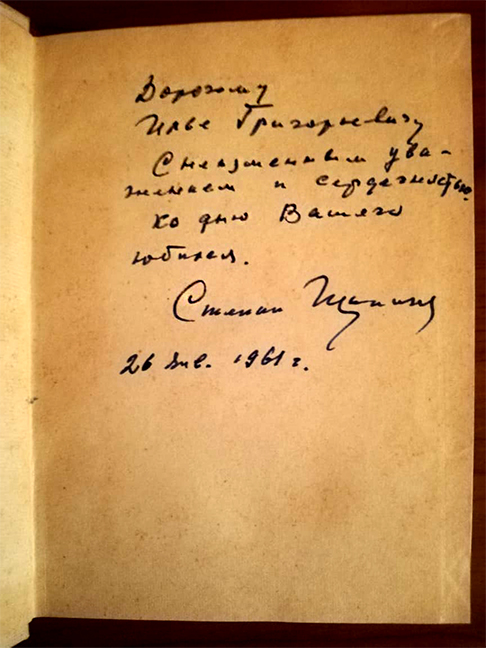 Дорогому
Илье Григорьевичу
С неизменным ува-
жением и сердечностью
ко дню Вашего
юбилея.
Степан Щипачев
26 янв. 1961 г.